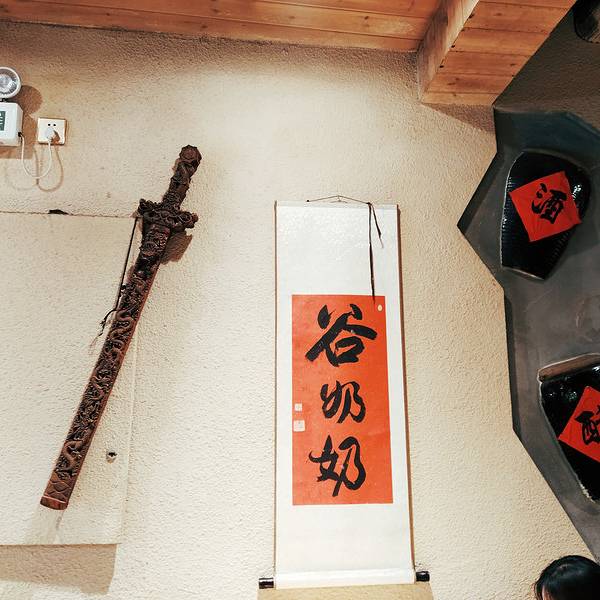 谷奶奶
酒